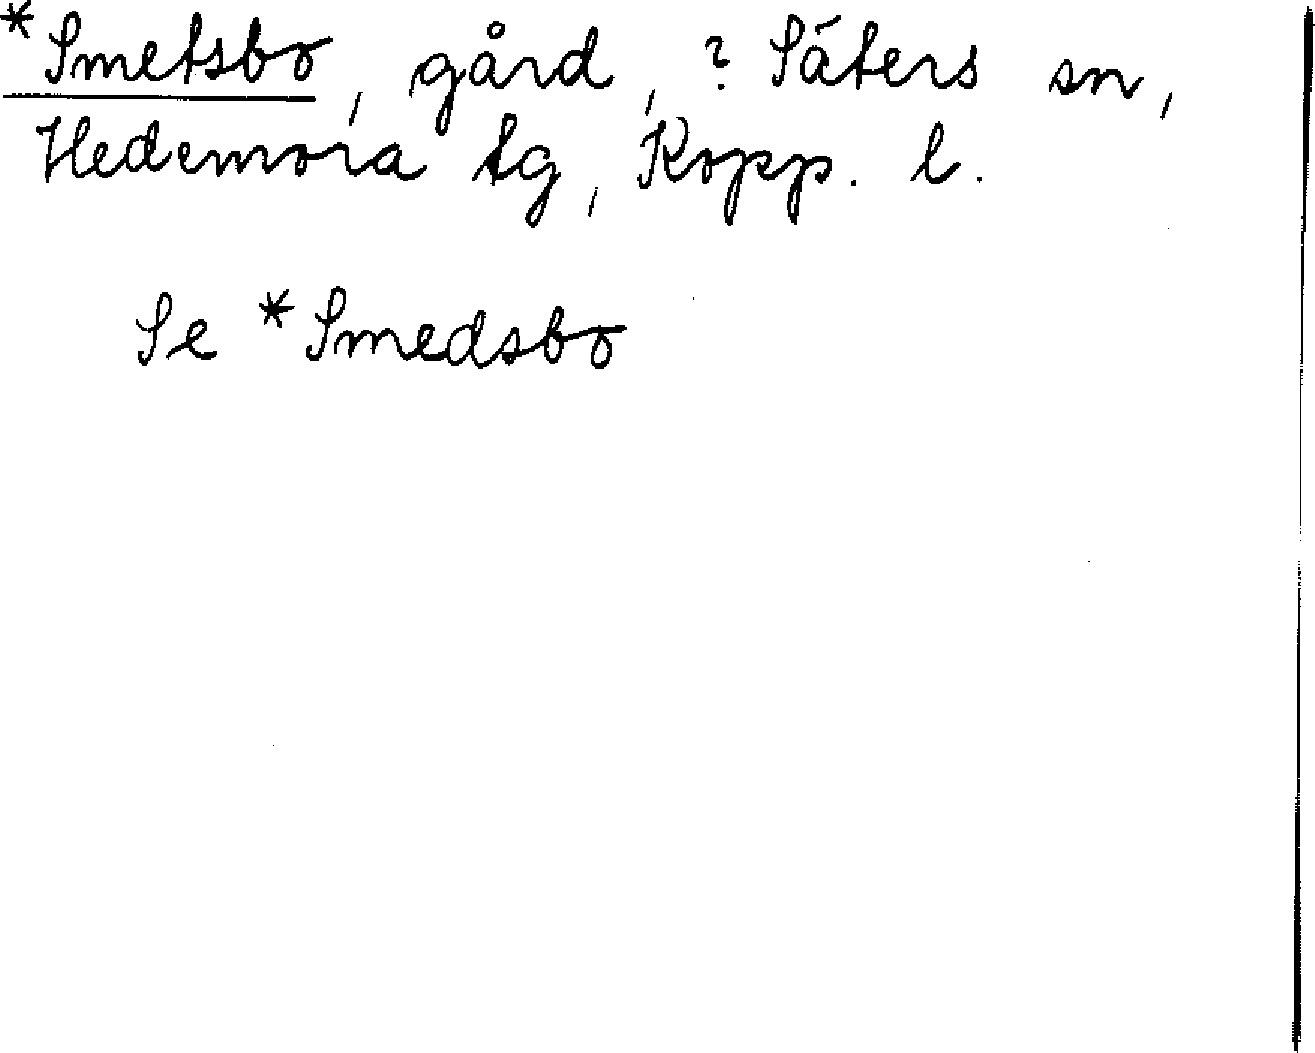 *Smetsbo, gård, ? Säters sn,
Hedemora tg, Kopp. l.
Se *Smedsbo